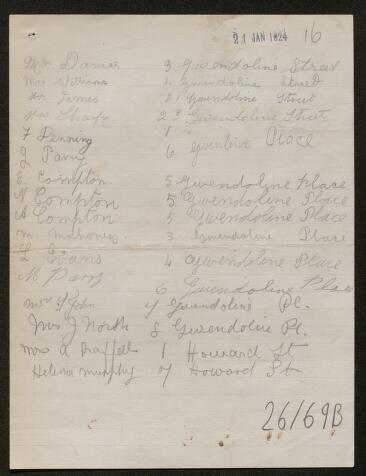 21 JAN 1924 16
Mrs Davies 3 Gwendoline Street
Mrs Williams 4 Gwendoline Street
Mr James 21 Gwendoline Street
Mrs Sharp 23 Gwendoline Street
F Denning 1
J Parry 6 Place
E. Compton 5 Gwendoline Place
N Compton 5 Gwendoline Place
A Compton 5 Gwendoline Place
M. Mahoney 3 Gwendoline Place
L Evans 4 Gwendolene Place
M Parry 6 Gwendoline Place
Mrs St John 7 Gwendoline Pl.
Mrs J North 8 Gwendoline Pl.
Mrs A 1 Howard St
Helena Murphy 7 Howard St
26/69B